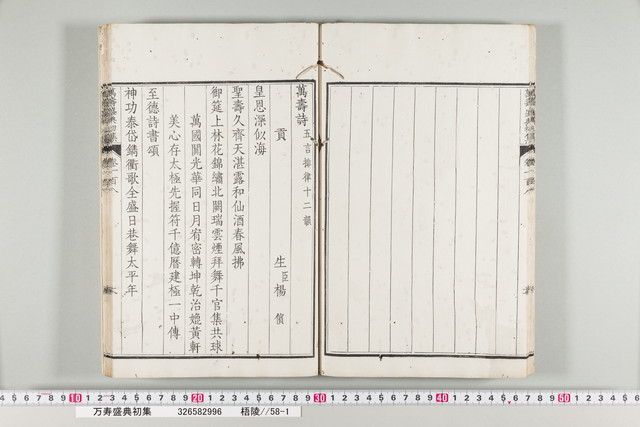 萬壽詩五言排律十二韻
貢生臣楊偵
皇恩深似海
聖壽久齊天湛露和仙酒春風拂
御筵上林花錦繡北闕瑞雲煙拜舞千官集共球
萬國閴光華同日月宥密轉坤乾治媲黃軒
美心存太極先握符千億曆建極一中傳
至德詩書頌
神功泰岱鐫衢歌全盛日巷舞太平年
萬壽盛典初集 卷一百八
万寿盛典初集 326582996 梧陵//58-1
10 20 30 40 50